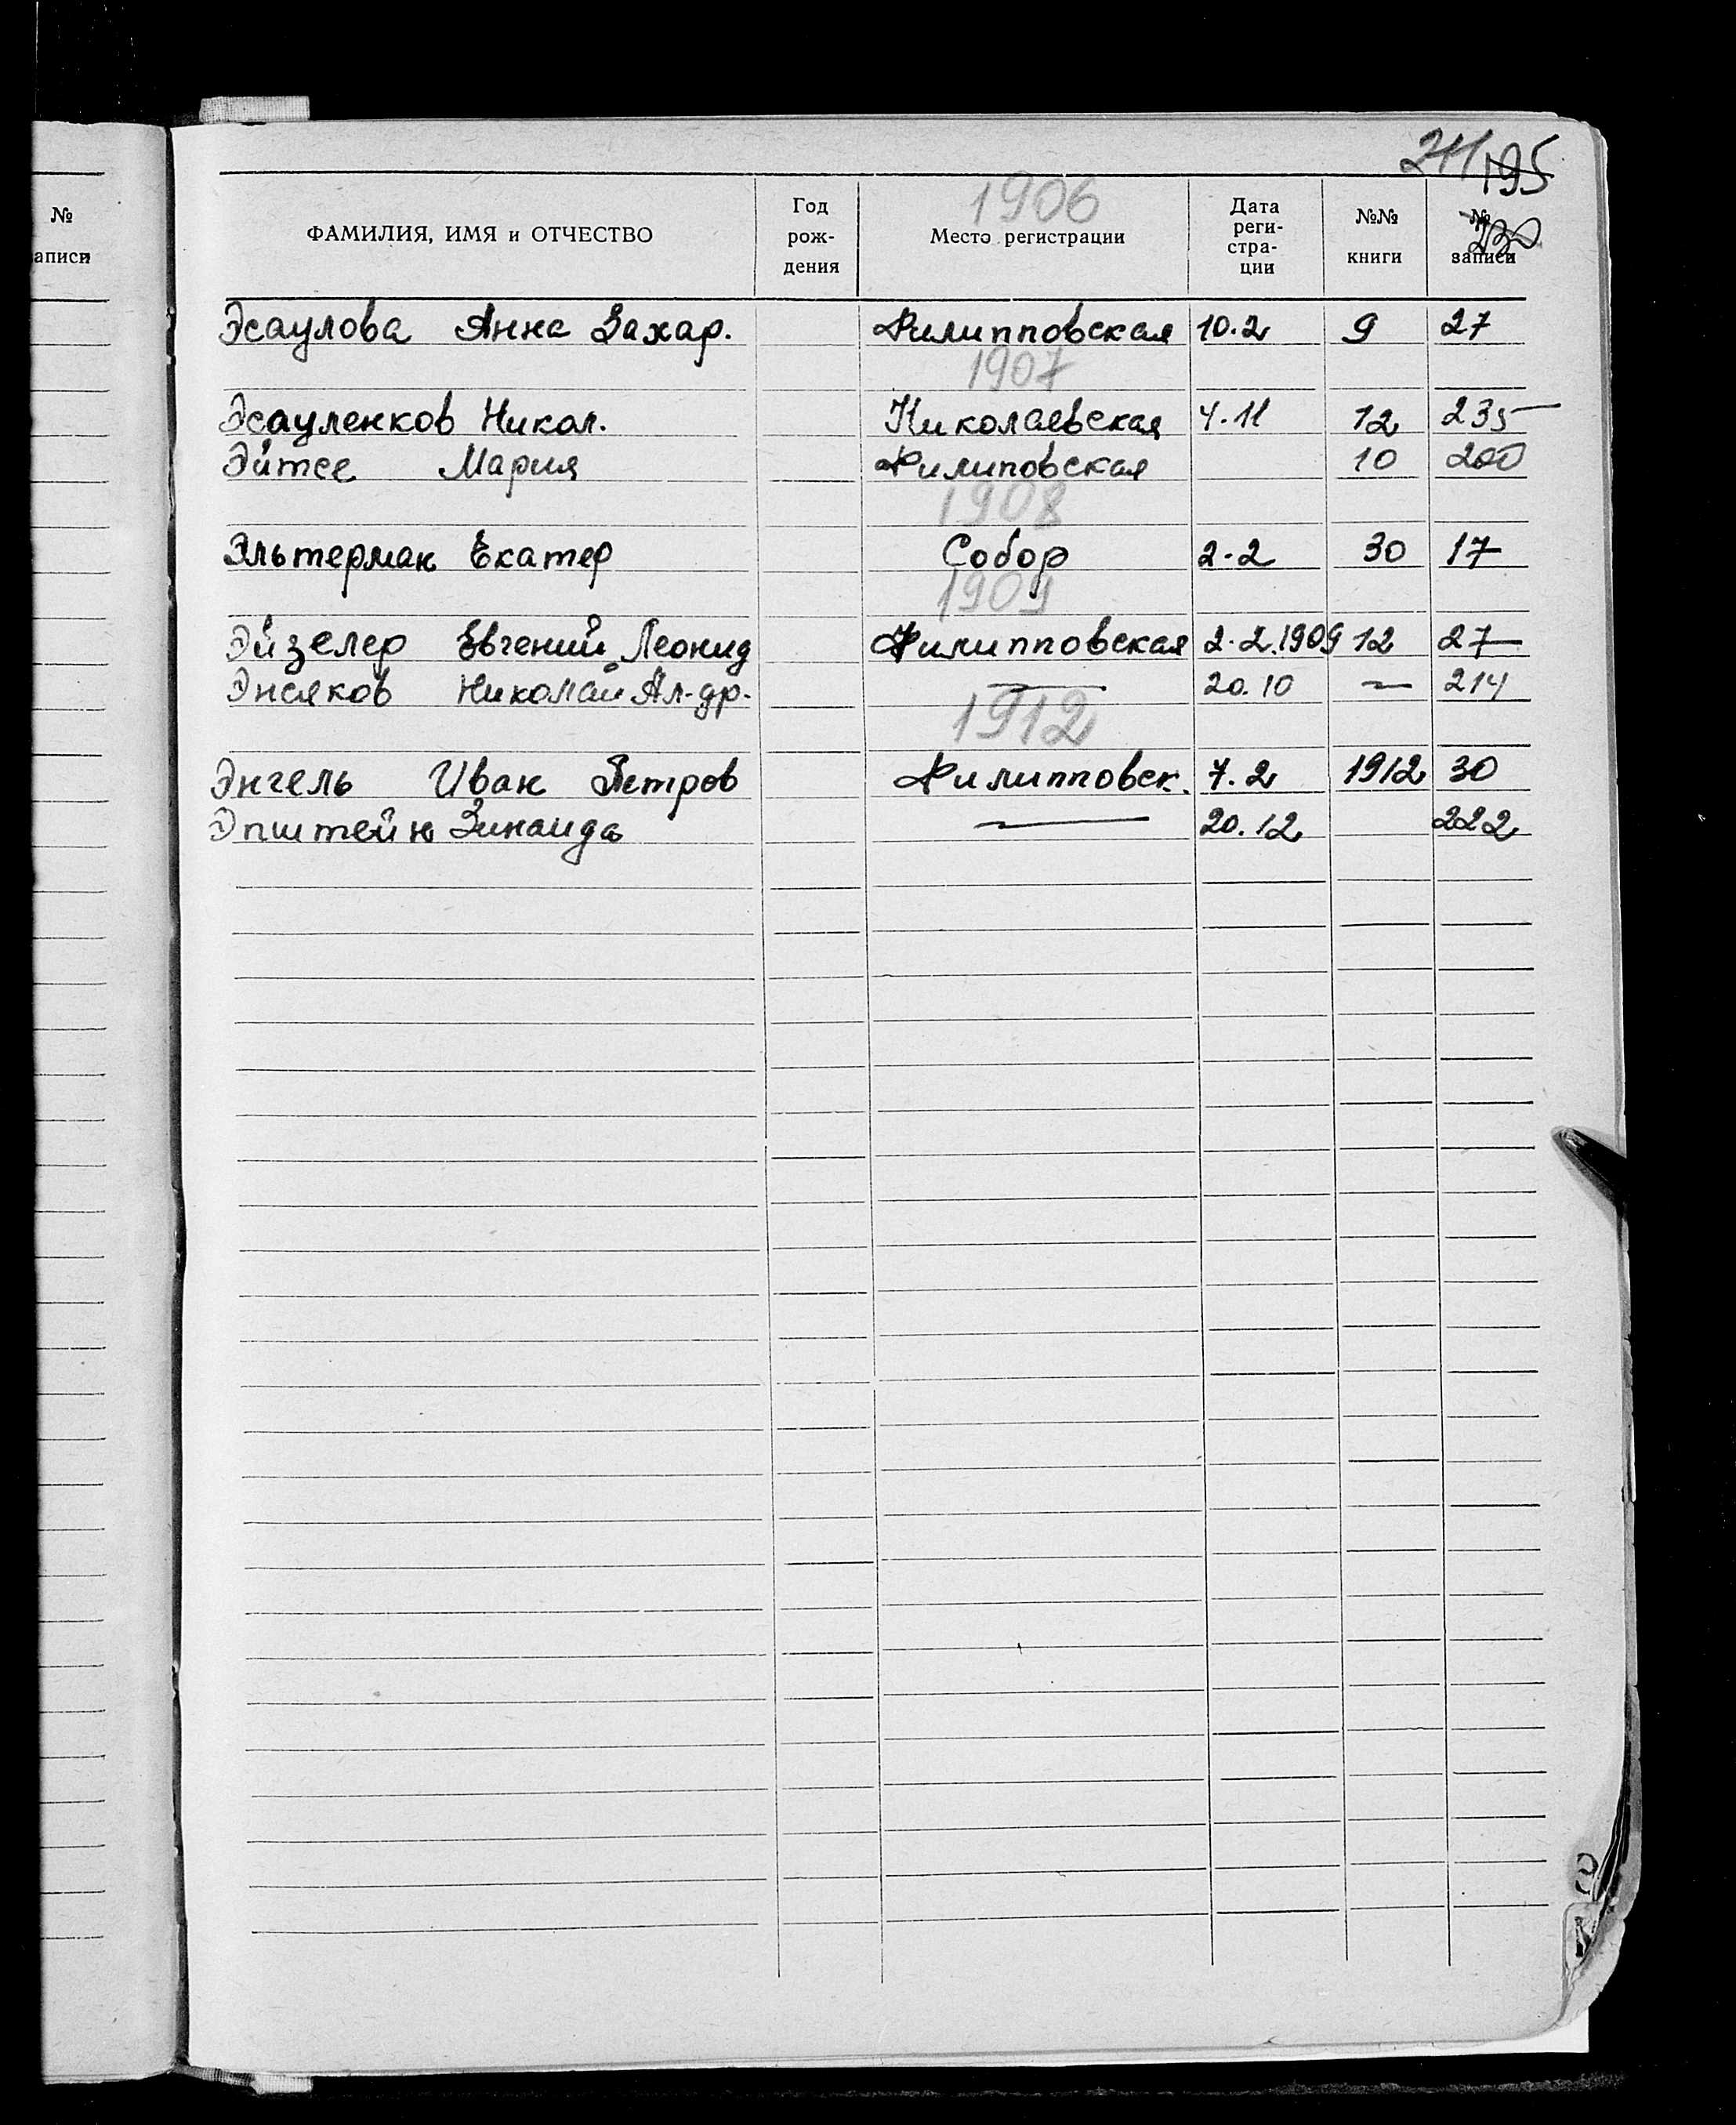 241 195
230
№
записи
ФАМИЛИЯ, ИМЯ и ОТЧЕСТВО Год рож- дения 1906 Место регистрации Дата реги- стра- ции №№ книги № записи
Эсаулова Анна Захар. Филипповская 10.2 9 27
1907
Эсауленков Никол. Николаевская 4.11 12 235
Эйтсе Мария Филиповская 10 200
1908
Эльтерман Екатер Собор 2-2 30 17
1909
Эйзелер Евгений Леонид Филипповская 2-2.1909 12 27
Энсяков Николай Ал-др. — 20.10 — 214
1912
Энгель Иван Петров Филипповск. 7.2 1912 30
Эпштейн Зинаида — 20.12 222
Э